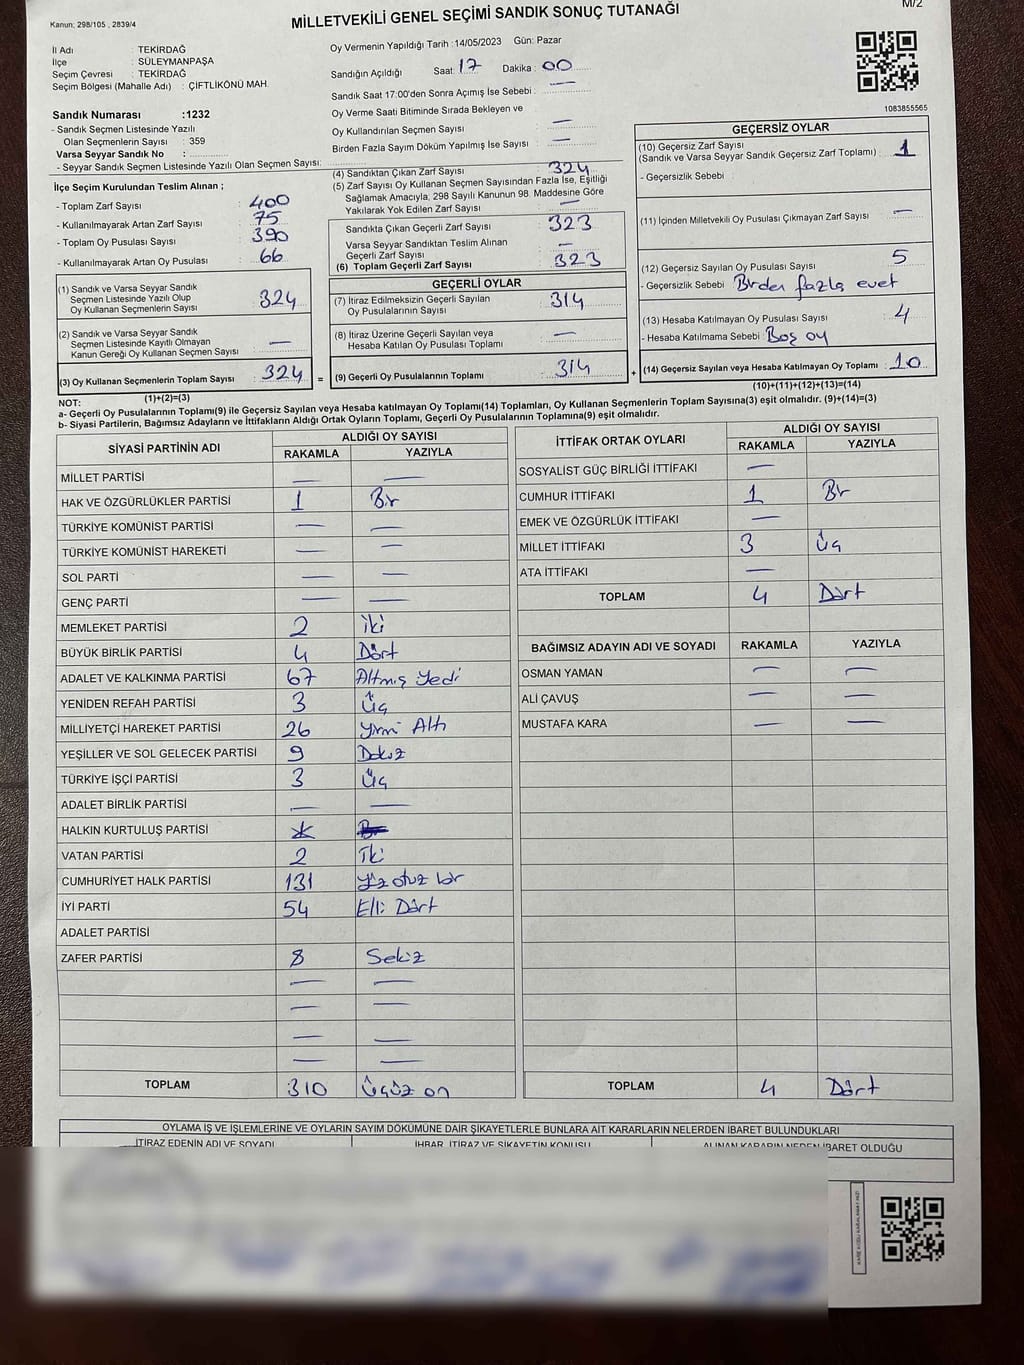 Kanun: 298/105 , 2839/4
MİLLETVEKİLİ GENEL SEÇİMİ SANDIK SONUÇ TUTANAĞI
M/2
İl Adı : TEKİRDAĞ
İlçe : SÜLEYMANPAŞA
Seçim Çevresi : TEKİRDAĞ
Seçim Bölgesi (Mahalle Adı) : ÇİFTLİKÖNÜ MAH.
Sandık Numarası :1232
- Sandık Seçmen Listesinde Yazılı
Olan Seçmenlerin Sayısı : 359
Varsa Seyyar Sandık No :
- Seyyar Sandık Seçmen Listesinde Yazılı Olan Seçmen Sayısı:
Oy Vermenin Yapıldığı Tarih :14/05/2023 Gün: Pazar
Sandığın Açıldığı Saat: 17 Dakika : 00
Sandık Saat 17:00'den Sonra Açımış İse Sebebi : —
Oy Verme Saati Bitiminde Sırada Bekleyen ve
Oy Kullandırılan Seçmen Sayısı : —
Birden Fazla Sayım Döküm Yapılmış İse Sayısı : —
1083855565
İlçe Seçim Kurulundan Teslim Alınan ;
- Toplam Zarf Sayısı : 400
- Kullanılmayarak Artan Zarf Sayısı : 75
- Toplam Oy Pusulası Sayısı : 390
- Kullanılmayarak Artan Oy Pusulası : 66
(1) Sandık ve Varsa Seyyar Sandık
Seçmen Listesinde Yazılı Olup
Oy Kullanan Seçmenlerin Sayısı : 324
(2) Sandık ve Varsa Seyyar Sandık
Seçmen Listesinde Kayıtlı Olmayan
Kanun Gereği Oy Kullanan Seçmen Sayısı : —
(3) Oy Kullanan Seçmenlerin Toplam Sayısı : 324
(1)+(2)=(3)
(4) Sandıktan Çıkan Zarf Sayısı : 324
(5) Zarf Sayısı Oy Kullanan Seçmen Sayısından Fazla İse, Eşitliği
Sağlamak Amacıyla, 298 Sayılı Kanunun 98. Maddesine Göre
Yakılarak Yok Edilen Zarf Sayısı : —
Sandıkta Çıkan Geçerli Zarf Sayısı : 323
Varsa Seyyar Sandıktan Teslim Alınan
Geçerli Zarf Sayısı : —
(6) Toplam Geçerli Zarf Sayısı : 323
GEÇERLİ OYLAR
(7) İtiraz Edilmeksizin Geçerli Sayılan
Oy Pusulalarının Sayısı : 314
(8) İtiraz Üzerine Geçerli Sayılan veya
Hesaba Katılan Oy Pusulası Toplamı : —
= (9) Geçerli Oy Pusulalarının Toplamı : 314
GEÇERSİZ OYLAR
(10) Geçersiz Zarf Sayısı
(Sandık ve Varsa Seyyar Sandık Geçersiz Zarf Toplamı) : 1
- Geçersizlik Sebebi :
(11) İçinden Milletvekili Oy Pusulası Çıkmayan Zarf Sayısı : —
(12) Geçersiz Sayılan Oy Pusulası Sayısı : 5
- Geçersizlik Sebebi : Birden fazla evet
(13) Hesaba Katılmayan Oy Pusulası Sayısı : 4
- Hesaba Katılmama Sebebi : Boş oy
+ (14) Geçersiz Sayılan veya Hesaba Katılmayan Oy Toplamı : 10
(10)+(11)+(12)+(13)=(14)
NOT:
a- Geçerli Oy Pusulalarının Toplamı(9) ile Geçersiz Sayılan veya Hesaba katılmayan Oy Toplamı(14) Toplamları, Oy Kullanan Seçmenlerin Toplam Sayısına(3) eşit olmalıdır. (9)+(14)=(3)
b- Siyasi Partilerin, Bağımsız Adayların ve İttifakların Aldığı Ortak Oyların Toplamı, Geçerli Oy Pusulalarının Toplamına(9) eşit olmalıdır.
SİYASİ PARTİNİN ADI ALDIĞI OY SAYISI
RAKAMLA YAZIYLA
MİLLET PARTİSİ — —
HAK VE ÖZGÜRLÜKLER PARTİSİ 1 Bir
TÜRKİYE KOMÜNİST PARTİSİ — —
TÜRKİYE KOMÜNİST HAREKETİ — —
SOL PARTİ — —
GENÇ PARTİ — —
MEMLEKET PARTİSİ 2 İki
BÜYÜK BİRLİK PARTİSİ 4 Dört
ADALET VE KALKINMA PARTİSİ 67 Altmış Yedi
YENİDEN REFAH PARTİSİ 3 Üç
MİLLİYETÇİ HAREKET PARTİSİ 26 Yirmi Altı
YEŞİLLER VE SOL GELECEK PARTİSİ 9 Dokuz
TÜRKİYE İŞÇİ PARTİSİ 3 Üç
ADALET BİRLİK PARTİSİ — —
HALKIN KURTULUŞ PARTİSİ
VATAN PARTİSİ 2 İki
CUMHURİYET HALK PARTİSİ 131 Yüz otuz bir
İYİ PARTİ 54 Elli Dört
ADALET PARTİSİ
ZAFER PARTİSİ 8 Sekiz
— —
— —
— —
— —
TOPLAM 310 Üçyüz on
İTTİFAK ORTAK OYLARI ALDIĞI OY SAYISI
RAKAMLA YAZIYLA
SOSYALİST GÜÇ BİRLİĞİ İTTİFAKI —
CUMHUR İTTİFAKI 1 Bir
EMEK VE ÖZGÜRLÜK İTTİFAKI —
MİLLET İTTİFAKI 3 Üç
ATA İTTİFAKI —
TOPLAM 4 Dört
BAĞIMSIZ ADAYIN ADI VE SOYADI RAKAMLA YAZIYLA
OSMAN YAMAN — —
ALİ ÇAVUŞ — —
MUSTAFA KARA — —
TOPLAM 4 Dört
OYLAMA İŞ VE İŞLEMLERİNE VE OYLARIN SAYIM DÖKÜMÜNE DAİR ŞİKAYETLERLE BUNLARA AİT KARARLARIN NELERDEN İBARET BULUNDUKLARI
İTİRAZ EDENİN ADI VE SOYADI İHBAR, İTİRAZ VE ŞİKAYETİN KONUSU ALINAN KARARIN NEDEN İBARET OLDUĞU